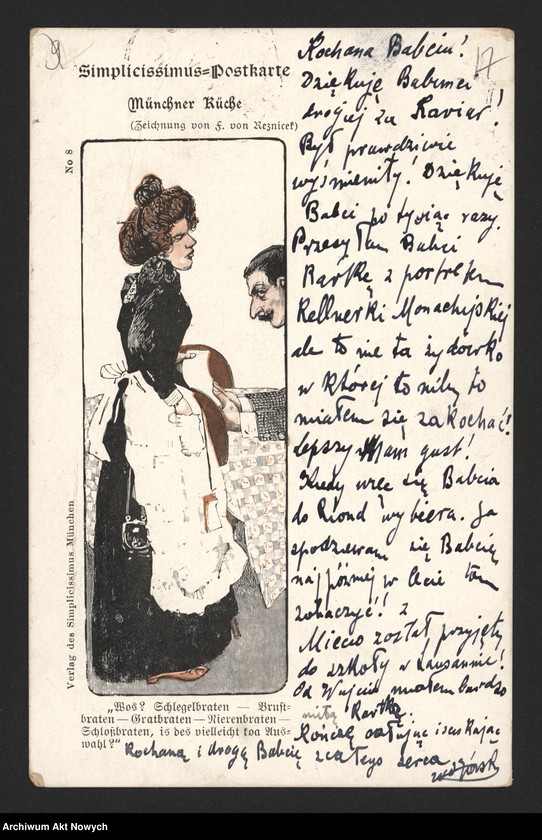 17
Simplicissimus=Postkarte
Münchner Küche
(Zeichnung von F. von Reznicek)
No 8
Verlag des Simplicissimus München
„Wos? Schlegelbraten — Brust-
braten — Gratbraten — Nierenbraten —
Schloßbraten, is des vielleicht koa Aus-
wahl?"
Kochana Babciu!
Dziękuję Babuni
drogiej za Kaviar!
Był prawdziwie
wyśmienity! Dziękuję
Babci po tysiąc razy.
Przesyłam Babci
Kartkę z portretem
Kellnerki Monachijskiej
ale to nie ta żydówka
w której to niby to
miałem się zakochać!
Lepszy Mam gust!
Kiedy więc się Babcia
do Riond wybiera. Ja
spodziewam się Babcię
najpóźniej w lecie tam
zobaczyć!!
Miecio został przyjęty
do szkoły w Lausannie!
Od Wujcia miałem bardzo
miłą Kartkę.
Kończę całując i ściskając
Kochaną i drogą Babcię z całego serca
Archiwum Akt Nowych